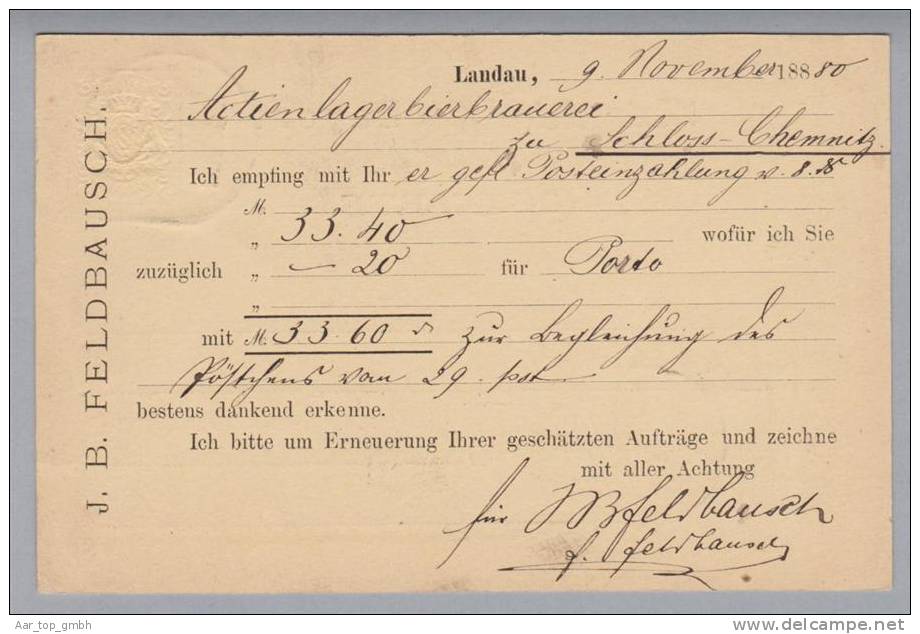 J. B. FELDBAUSCH.
Landau, 9. November 188880
Actienlagerbierbrauerei
zu Schloss-Chemnitz.
Ich empfing mit Ihr er gefl Posteinzahlung v. 8.
M.
„ 33.40 wofür ich Sie
zuzüglich „ — 20 für Porto
„
mit M. 33.60 zur Begleichung des
Pöstchens vom 29. pst
bestens dankend erkenne.
Ich bitte um Erneuerung Ihrer geschätzten Aufträge und zeichne
mit aller Achtung
für JB Feldbausch
f. Feldbausch
Aar_top_gmbh
www.delcampe.net